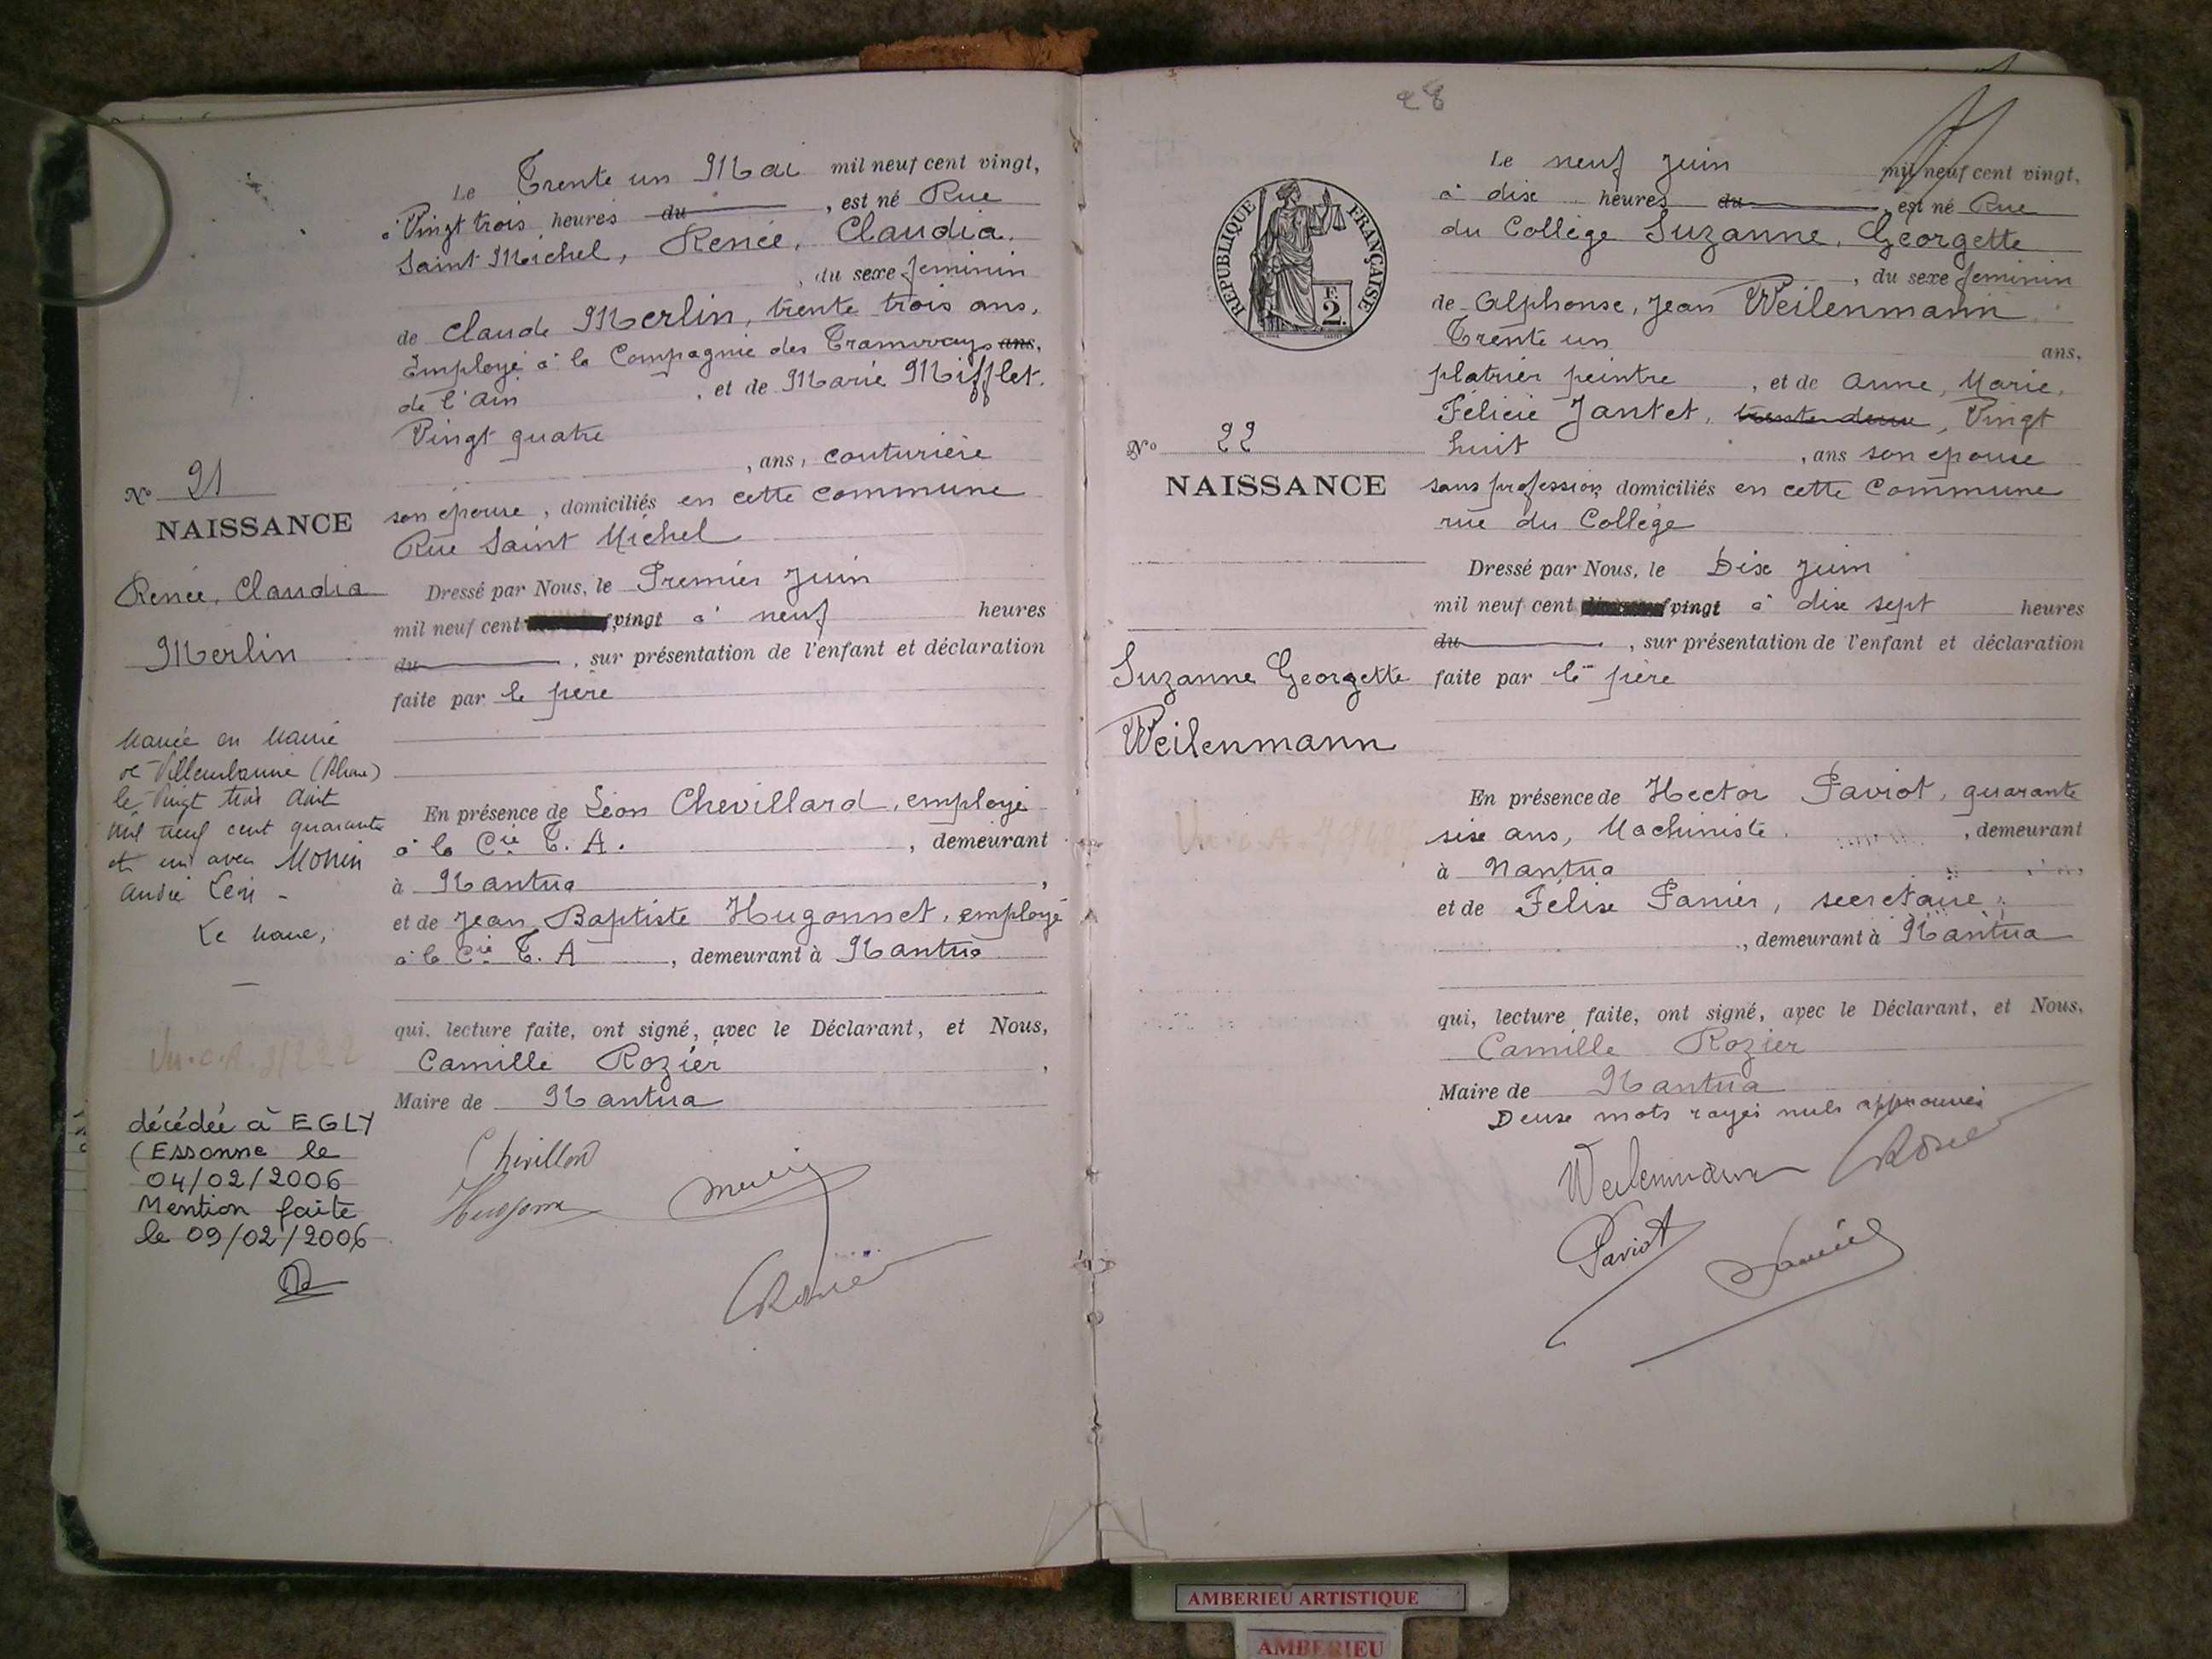 N° 21
NAISSANCE
Renée, Claudia
Merlin
Mariée en Mairie
de Villeurbanne (Rhône)
le vingt trois Août
mil neuf cent quarante
et un avec Monin
André
Le Maire,
décédée à EGLY
(Essonne le
04/02/2006
Mention faite
le 09/02/2006
Le Trente un Mai mil neuf cent vingt,
à Vingt trois heures du , est né Rue
Saint Michel, Renée, Claudia.
, du sexe feminin
de Claude Merlin, trente trois ans,
Employé à la Compagnie des Tramways ans,
de l'Ain , et de Marie Mifflet.
Vingt quatre
, ans, couturière
son épouse, domiciliés en cette commune
Rue Saint Michel
Dressé par Nous, le Premier Juin
mil neuf cent vingt à neuf heures
du , sur présentation de l'enfant et déclaration
faite par le père
En présence de Léon Chevillard, employé
à la Cie T. A. , demeurant
à Nantua ,
et de Jean Baptiste Hugonnet, employé
à la Cie T. A , demeurant à Nantua
qui, lecture faite, ont signé, avec le Déclarant, et Nous,
Camille Rozier ,
Maire de Nantua
28
REPUBLIQUE FRANÇAISE
F.
2.
N° 22
NAISSANCE
Suzanne Georgette
Weilenmann
Le neuf Juin mil neuf cent vingt,
à dix heures du , est né Rue
du Collège Suzanne, Georgette
, du sexe feminin
de Alphonse, Jean Weilenmann
Trente un ans,
platrier peintre , et de Anne, Marie,
Félicie Jantet, trente deux, Vingt
huit , ans son épouse
sans profession domiciliés en cette Commune
rue du Collège
Dressé par Nous, le Dix Juin
mil neuf cent vingt à dix sept heures
du , sur présentation de l'enfant et déclaration
faite par le père
En présence de Hector Paviot, quarante
six ans, Machiniste , demeurant
à Nantua
et de Félix Panier, secretaire
, demeurant à Nantua
qui, lecture faite, ont signé, avec le Déclarant, et Nous,
Camille Rozier
Maire de Nantua
Deux mots rayés nuls approuvés
Weilenmann Rozier
Paviot
AMBERIEU ARTISTIQUE
AMBERIEU